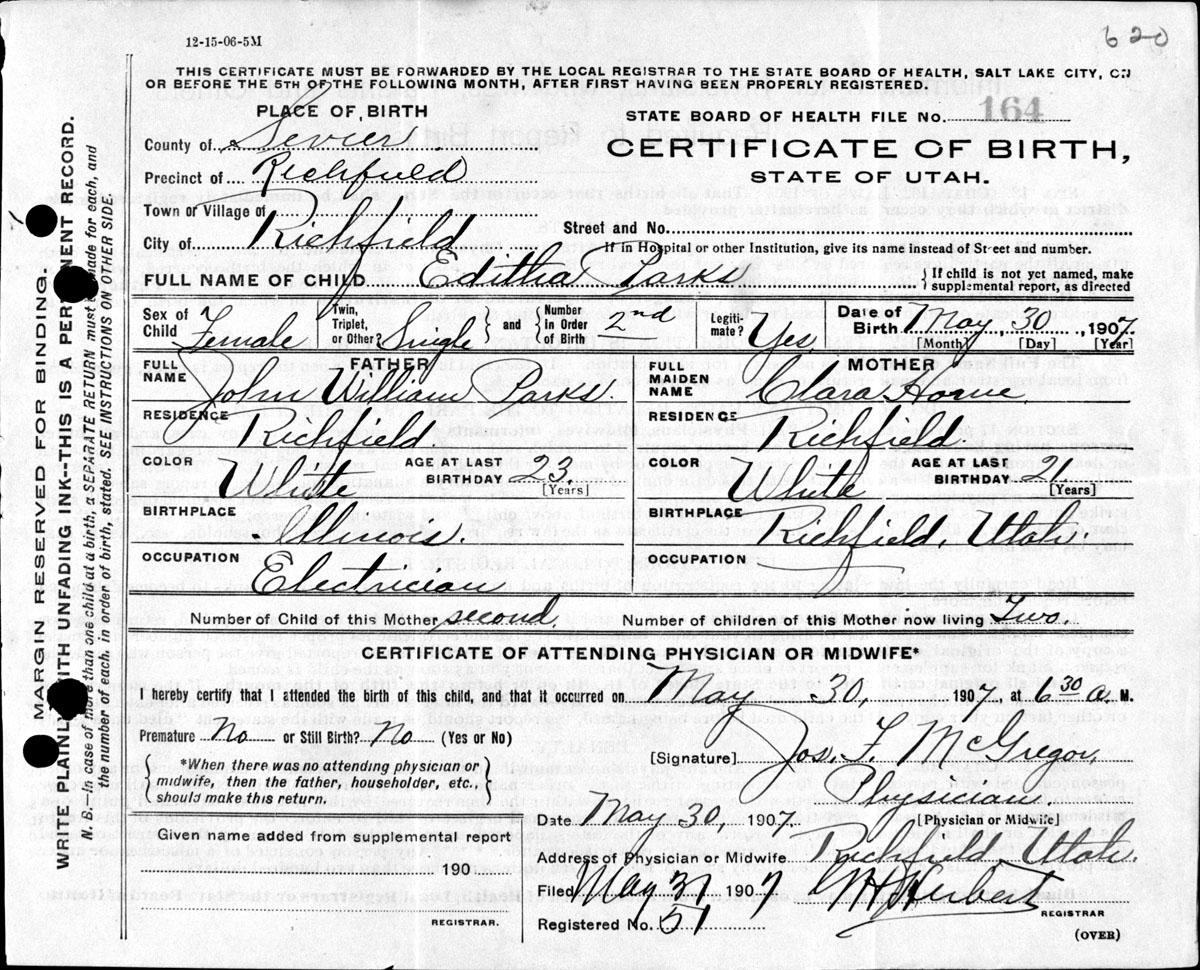 12-15-06-5M
620
THIS CERTIFICATE MUST BE FORWARDED BY THE LOCAL REGISTRAR TO THE STATE BOARD OF HEALTH, SALT LAKE CITY, ON
OR BEFORE THE 5TH OF THE FOLLOWING MONTH, AFTER FIRST HAVING BEEN PROPERLY REGISTERED.
PLACE OF BIRTH
County of Sevier
Precinct of Richfield
Town or Village of
City of Richfield
STATE BOARD OF HEALTH FILE No. 164
CERTIFICATE OF BIRTH,
STATE OF UTAH.
Street and No.
If in Hospital or other Institution, give its name instead of Street and number.
FULL NAME OF CHILD Editha Parks
If child is not yet named, make
supplemental report, as directed
Sex of Child Female
Twin, Triplet, or Other? Single
and Number In Order of Birth 2nd
Legitimate? Yes
Date of Birth May 30, 1907.
[Month] [Day] [Year]
FATHER
FULL NAME John William Parks.
RESIDENCE Richfield.
COLOR White
AGE AT LAST BIRTHDAY 23.
[Years]
BIRTHPLACE Illinois.
OCCUPATION Electrician
MOTHER
FULL MAIDEN NAME Clara Horne.
RESIDENCE Richfield.
COLOR White
AGE AT LAST BIRTHDAY 21.
[Years]
BIRTHPLACE Richfield, Utah.
OCCUPATION
Number of Child of this Mother second.
Number of children of this Mother now living Two.
CERTIFICATE OF ATTENDING PHYSICIAN OR MIDWIFE*
I hereby certify that I attended the birth of this child, and that it occurred on May 30, 1907, at 6 30 a M.
Premature No or Still Birth? No (Yes or No)
*When there was no attending physician or
midwife, then the father, householder, etc.,
should make this return.
Given name added from supplemental report
190
REGISTRAR.
[Signature] Jos. F. McGregor,
Physician
[Physician or Midwife]
Date May 30, 1907.
Address of Physician or Midwife Richfield Utah.
Filed May 31, 1907 Herbert
REGISTRAR
Registered No. 51
(OVER)
MARGIN RESERVED FOR BINDING.
WRITE PLAINLY WITH UNFADING INK--THIS IS A PERMANENT RECORD.
N. B. In case of more than one child at a birth, a SEPARATE RETURN must be made for each, and
the number of each, in order of birth, stated. SEE INSTRUCTIONS ON OTHER SIDE.